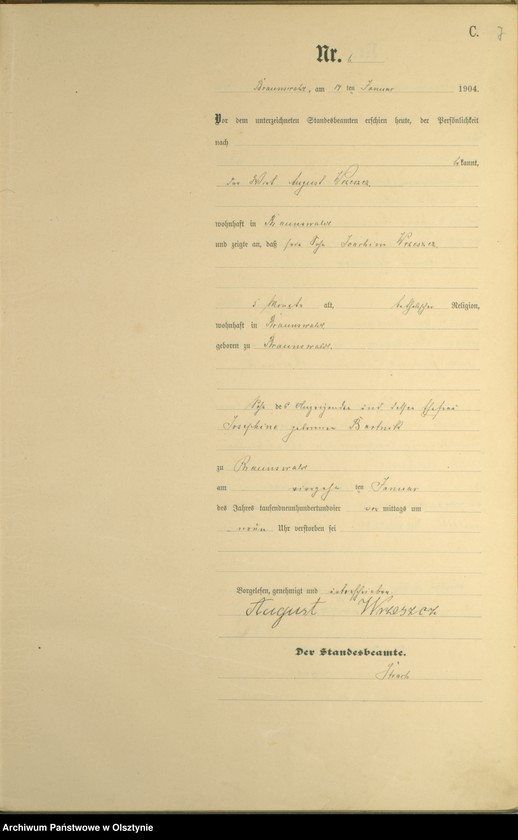 C. 7
Nr. 6
Braunswalde, am 14 ten Januar 1904.
Vor dem unterzeichneten Standesbeamten erschien heute, der Persönlichkeit
nach
bekannt,
der Wirt August Wrzeszcz
wohnhaft in Braunswalde
und zeigte an, daß sein Sohn Joachim Wrzeszcz
Monate alt, katholischer Religion,
wohnhaft in Braunswalde
geboren zu Braunswalde
Sohn des Anzeigenden und dessen Ehefrau
Josephine geborenen
zu Braunswalde
am vierzehn ten Januar
des Jahres tausendneunhundertundvier vor mittags um
neun Uhr verstorben sei
Vorgelesen, genehmigt und unterschrieben
August Wrzeszcz
Der Standesbeamte.
Archiwum Państwowe w Olsztynie